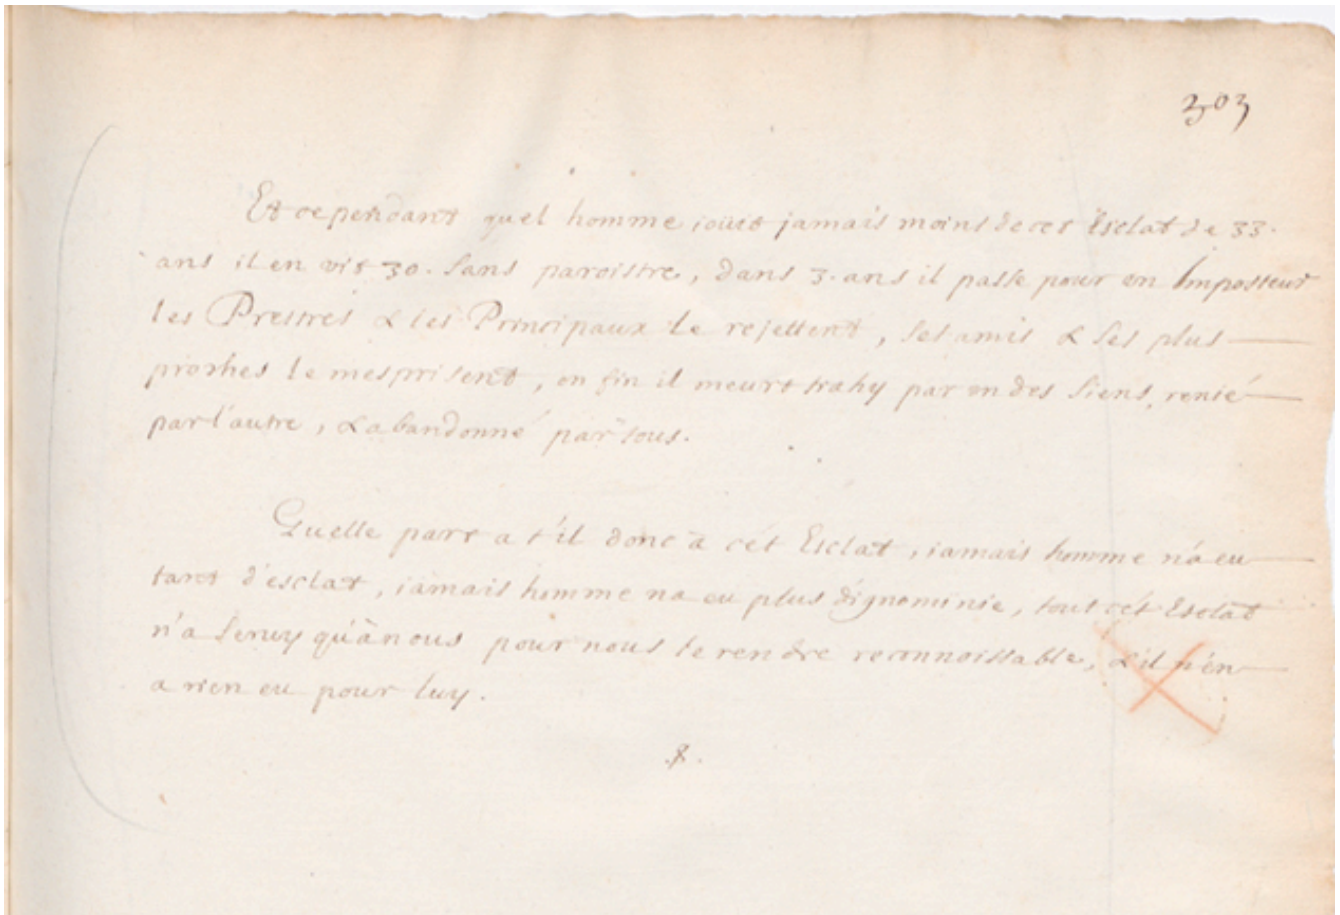 303
Et cependant quel homme iouit jamais moins de cet Esclat de 33.
ans il en vit 30. sans paroistre, dans 3. ans il passe pour un Imposteur
les Prestres & les Principaux le rejettent, ses amis & ses plus
proches le mesprisent, en fin il meurt trahy par un des siens, renié
par l'autre, & abandonné par tous.
Quelle part a t'il donc à cét Esclat, iamais homme n'a eu
tant d'esclat, iamais homme na eu plus d'ignominie, tout cét Esclat
n'a seruy qu'à nous pour nous le rendre reconnoissable, & il n'en
a rien eu pour luy.